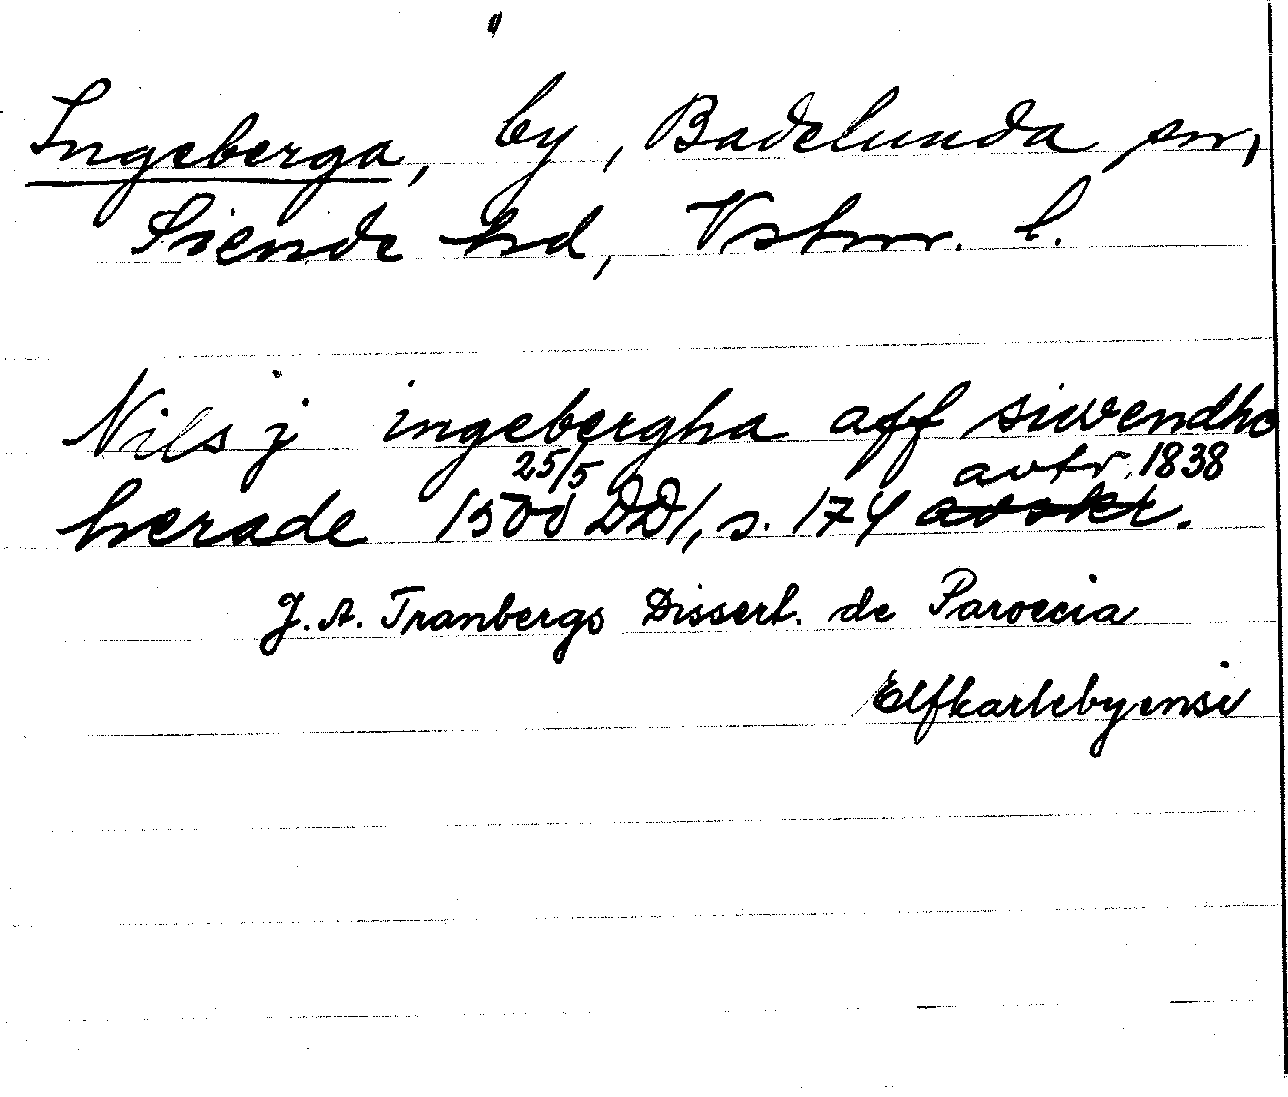 Ingeberga, by, Badelunda sn,
Siende hd, Vstm. l.
Nils j ingebergha aff siwendho
25/5 avtr. 1838
herade 1500 DD1, s. 174 avskr.
J. A. Tranbergs Dissert. de Paroecia
Elfkarlebyensi